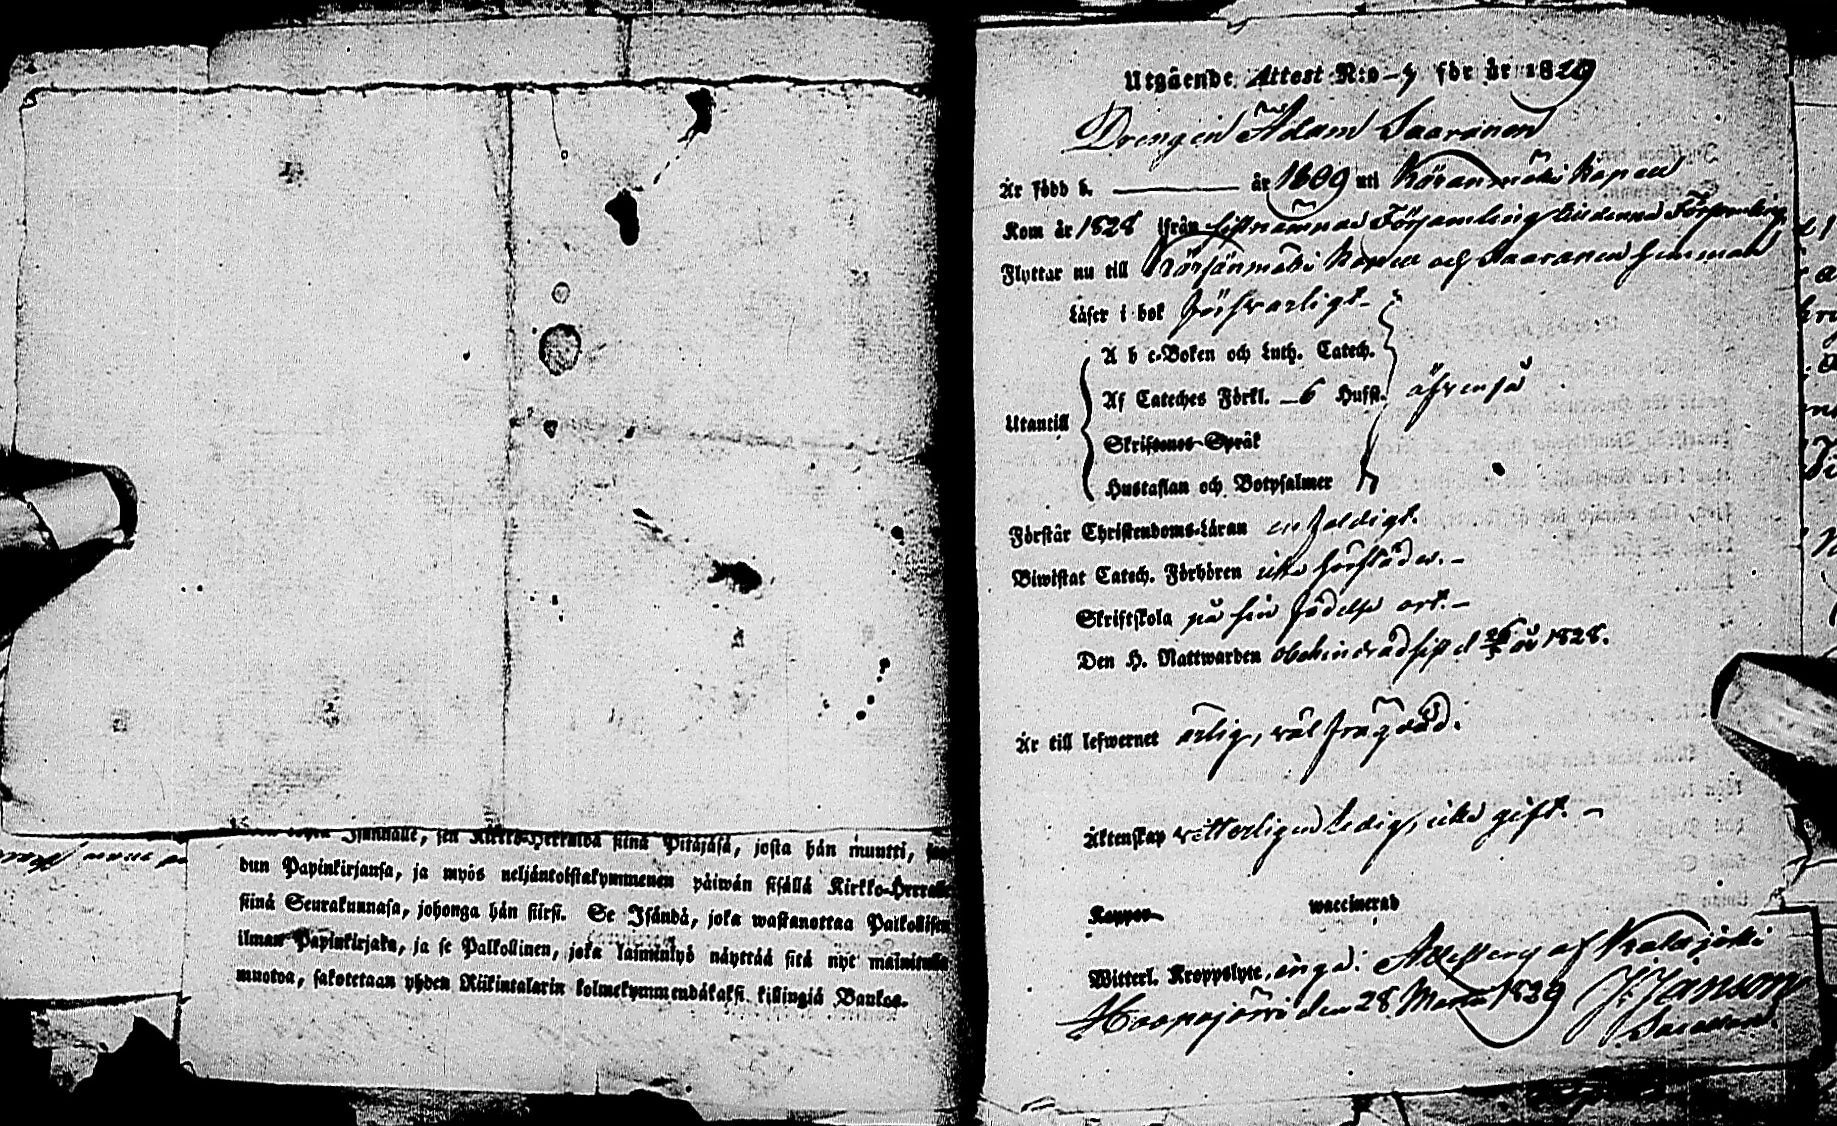 Isännälle, sen Kirkko-Herralda siinä Pitäjäsä, josta hän muutti,
dun Papinkirjansa, ja myös neljäntoistakymmenen päiwän sisällä Kirkko-Herralle
siinä Seurakunnasa, johonga hän siirsi. Se Isändä, joka wastanottaa Palkollisen
ilman Papinkirjata, ja se Palkollinen, joka laiminlyö näyttää sitä nyt mainittua
muotoa, sakotetaan yhden Riikintalarin kolmekymmendäkaksi killingiä Bankos.
Utgående Attest N:o 7 för år 1829
Drengen Adam Saaranen
Är född d. år 1809 uti Körsänmäki Kapell
Kom år 1828 ifrån sistnämnde Församling till denna Församling
Flyttar nu till Körsänmäki Kapell och Saaranen hemman
Läser i bok försvarligt
A b c-Boken och Luth. Catech.
Utantill Af Cateches Förkl. 6 Hufst. äfvenså
Skriftenes Språk
Hustaflan och Botpsalmer
Förstår Christendoms-Läran enfaldigt.
Biwistat Catech. Förhören
Skriftskola på sin födelse ort.
Den H. Nattwarden obehindrad sist d 26/5 år 1828.
Är till lefwernet ärlig, väl frägdad.
Äktenskap vetterligen ledig, icke gift.
Koppor waccinerad
Witterl. Kroppslyte, inga. Attesterar af Kalajoki
Haapajärvi den 28 Martii 1829 J. Janson